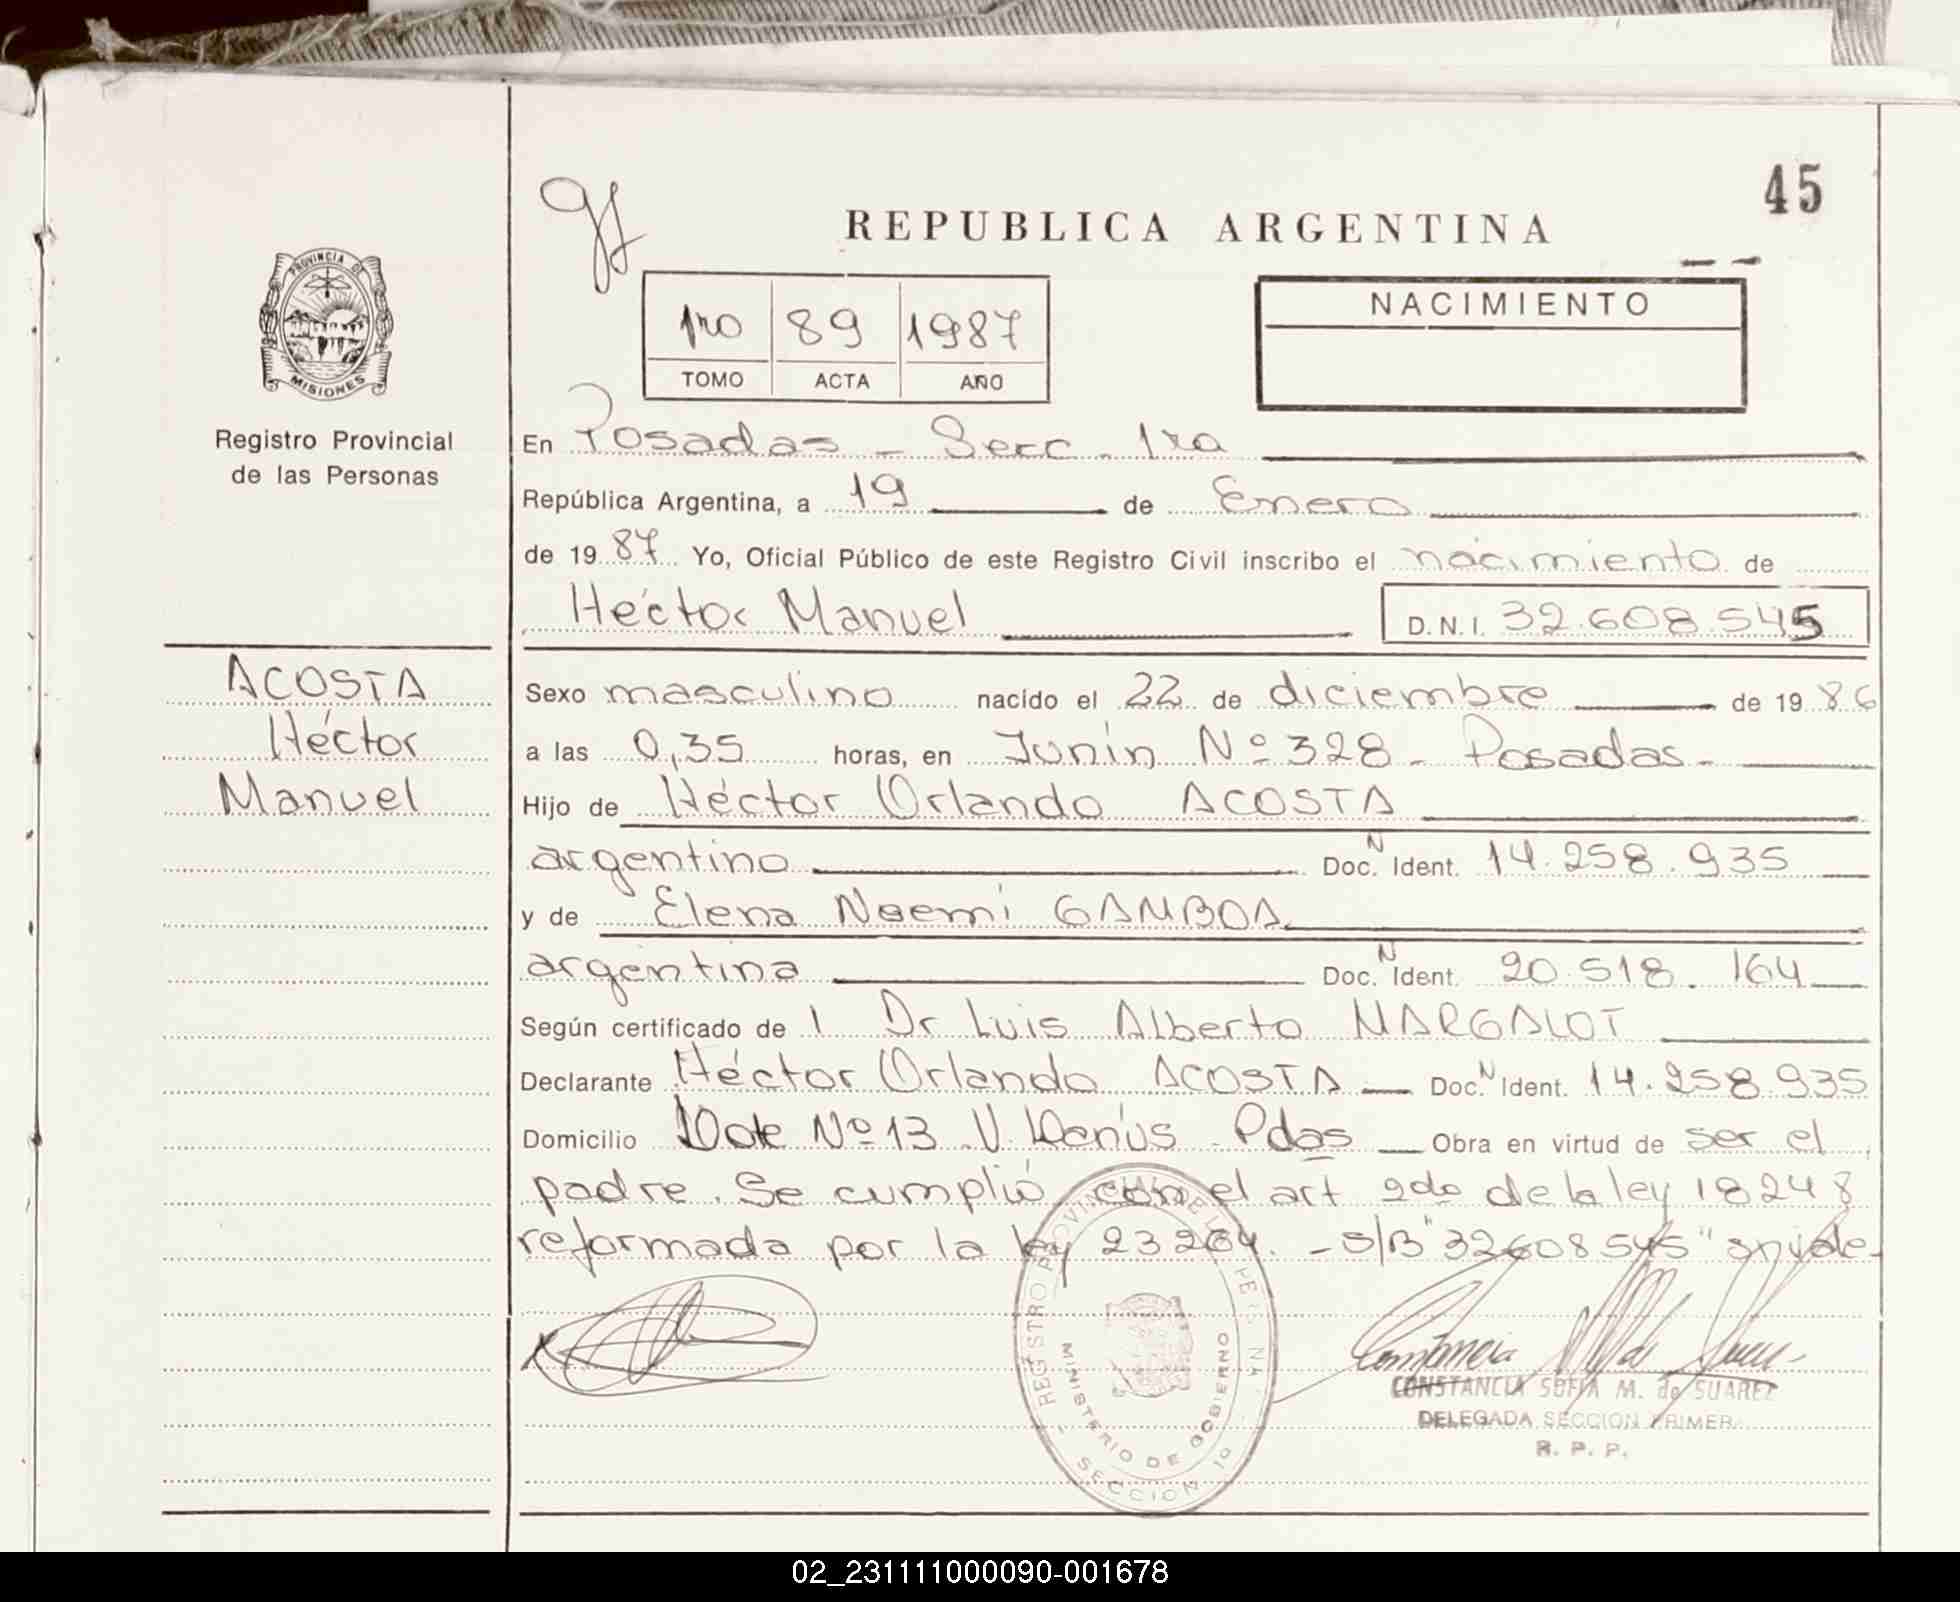 45
REPUBLICA ARGENTINA
PROVINCIA DE
MISIONES
Registro Provincial
de las Personas
1ro 89 1987
TOMO ACTA AÑO
NACIMIENTO
En Posadas - Secc. 1ra
República Argentina, a 19 de Enero
de 1987 Yo, Oficial Público de este Registro Civil inscribo el nacimiento de
Héctor Manuel D.N.I. 32.608.545
ACOSTA
Héctor
Manuel
Sexo masculino nacido el 22 de diciembre de 1986
a las 0,35 horas, en Junín Nº 328 - Posadas -
Hijo de Héctor Orlando ACOSTA
argentino Doc. N Ident. 14.258.935
y de Elena Noemí GAMBOA
argentina Doc. N Ident. 20.518.164
Según certificado de l Dr Luis Alberto MARGALOT
Declarante Héctor Orlando ACOSTA Doc. N Ident. 14.258.935
Domicilio Lote Nº 13 V. Lanús - Pdas Obra en virtud de ser el
padre. Se cumplió con el art 2do de la ley 18248
reformada por la ley 23264. - S/B "32608545"
REGISTRO PROVINCIAL DE LAS PERSONAS
MINISTERIO DE GOBIERNO
SECCION 1ª
CONSTANCIA SOFIA M. de SUAREZ
DELEGADA SECCION PRIMERA
R. P. P.
02_231111000090-001678